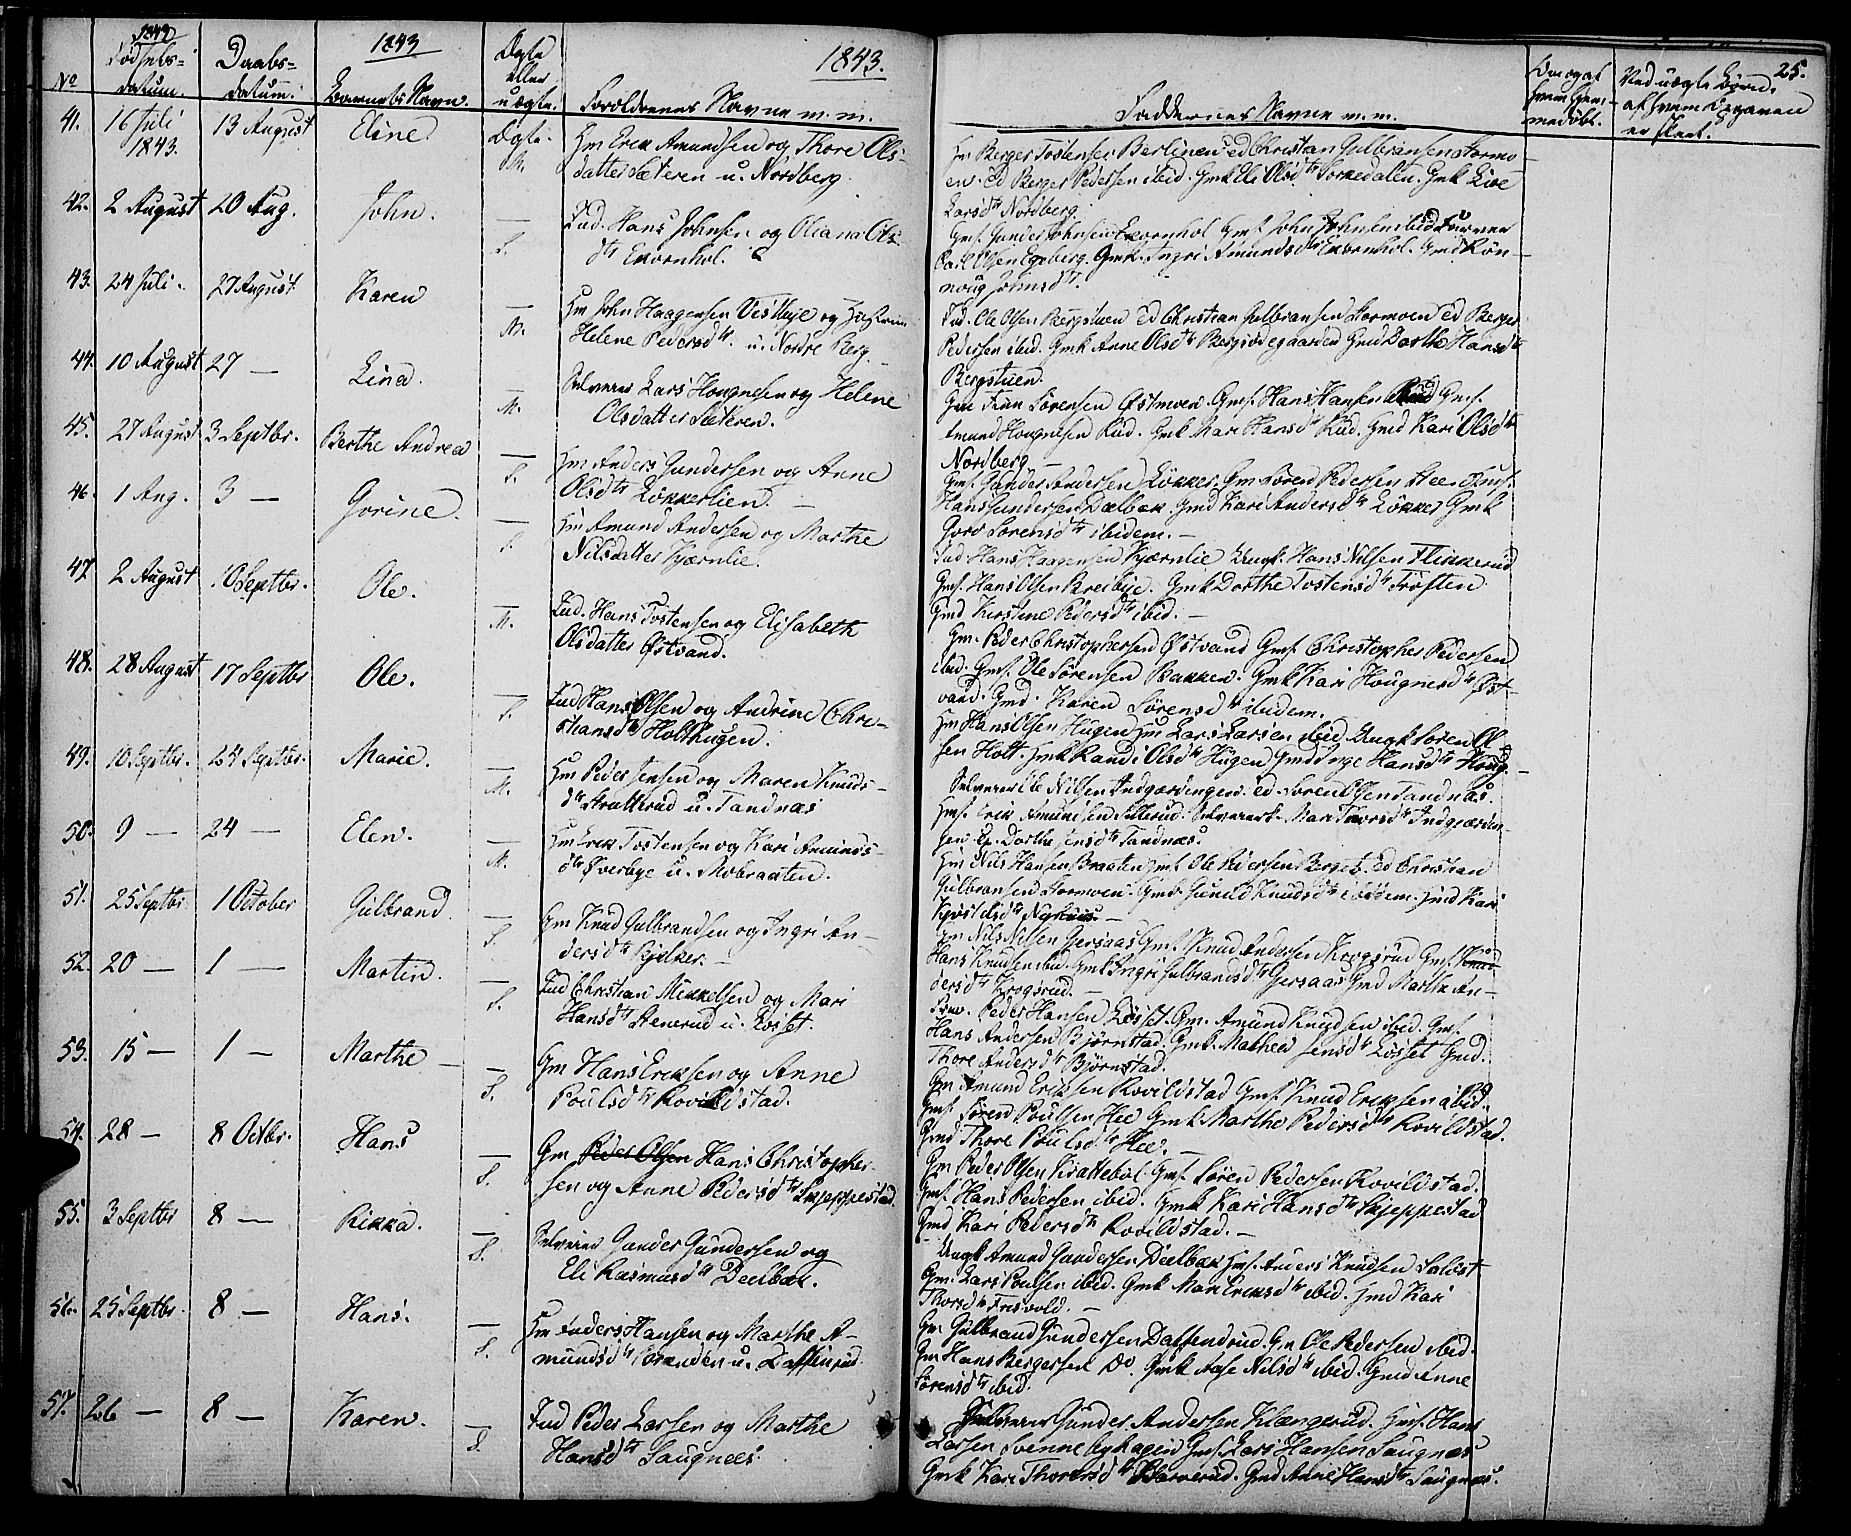 1843
Fødsels-
datum.
Daabs-
datum.
1843
Barnets Navn.
Ægte
eller
uægte.
1843.
Forældrenes Navne m. m.
No
41. 16 Juli
1843.
13 August
Eline
Ægte.
M.
Gm Erik Amundsen og Thore Ols-
datter Sæteren u. Nordberg.
42. 2 August 20 Aug. John. —
S.
Ind. Hans Johnsen og Oliana Ols-
dtr Exornhol.
43. 24 Juli. 27 August Karen —
M.
Gm John Haagensen Vestbye og Hustrue
Helene Pedersdtr. u. Nordre Berg.
44. 10 August 27 — Lina. —
M.
Selveier Lars Hougnesen og Helene
Olsdatter Sæteren.
45. 27 August 3 Septbr. Berthe Andrea —
S.
Gm Anders Gundersen og Anne
Olsdtr Løkkerlien. —
46. 1 Aug. 3 — Gorine. —
S.
Gm Amund Andersen og Marthe
Nilsdatter Kjærnlie.
47 2 August 10 Septbr. Ole. —
M.
Ind. Hans Tostensen og Elisabeth
Olsdatter Østvand.
48. 28 August 17 Septbr Ole. —
S.
Ind Hans Olsen og Andrine Chri-
stiansdtr Holthugen.
49. 10 Septbr. 24 Septbr. Marie. —
M.
Gm Peder Jensen og Maren Knuds-
dtr Skratterud u. Tandnæs
50. 9 — 24 — Elen. —
M.
Gm Erik Tostensen og Kari Amunds-
dtr Øverbye u. Mobraaten.
51. 25 Septbr. 1 October Gulbrand. —
S.
Gm Knud Gulbrandsen og Ingri An-
dersdtr Kjølher. —
52. 20 — 1 — Martin. —
S.
Ind Christian Mikkelsen og Mari
Hansdtr Stenerud u. Løset.
53. 15 — 1 — Marthe — —
S.
Gm Hans Eriksen og Anne
Poulsdtr Rovildstad.
54. 28 — 8 Octbr. Hans —
S.
Gm Peder Olsen Hans Christopher-
sen og Anne Pedersdtr Skjeppestad.
55. 3 Septbr 8 — Rikka. —
S.
Selveier Gunder Gundersen og
Eli Rasmusdtr Deelbæk.
56. 25 Septbr. 8 — Hans. —
S.
Gm Anders Hansen og Marthe A-
mundsdtr u. Daffinrud.
57. 26 — 8 — Karen. —
S.
Ind Peder Larsen og Marthe
Hansdtr Saugnæs.
25.
Faddernes Navne m. m.
Om og af
hvem hjem-
medøbt.
Ved uægte Børn,
af hvem Opgaven
er skeet.
Gm Berger Tostensen Berlinen ed Christian Gulbransen Stormo-
en. ed Berger Pedersen ibid. Gmk Eli Olsdtr Sorkedalen. Gmk Live
Larsdtr Nordberg.
Gmf. Gunder Johnsen Exornhol Gmf John Johnsen ibid
Carl Olsen Egeberg. Gmk. Ingri Amundsdtr Exornhol. Gmd Røn-
noug Johnsdtr.
Ind. Ole Olsen Bergstuen ed Christian Gulbransen Stormoen ed Berger
Pedersen ibid. Gmk Anne Olsdtr Bergsødegaarden Gmd Dorthe Hansdtr
Bergstuen.
Gm Finn Sørensen Østmoen. Gmf. Hans Hansen Rud Gmf.
Amund Hougnesen Rud. Gmk Mari Hansdtr Rud. Gmd Kari Olsdtr
Nordberg —
Gmf. Gunder Andersen Løkker. Gm Søren Pedersen Heen Gmf.
Hans Gundersen Dælbæk. Gmd Kari Andersdtr Løkker Gmk
Goro Sorensdtr ibidem. —
Ind Hans Haagensen Kjærnlie Ungk. Hans Nilsen Flikkerud
Gmf. Hans Olsen Breibye. Gmk Dorthe Tostensdtr Trøften
Gmd Kirstine Pedersdtr ibid. —
Gm. Peder Christophersen Østvand Gmf. Christopher Pedersen
ibid. Gmf. Ole Sørensen Bakken. Gmk Kari Hougnesdtr Øst-
vand. Gmd. Karen Sørensdtr ibidem.
Gm Hans Olsen Hugen Gm Lars Larsen ibid Ungk Soren Ol-
sen Holt. Gmk Randi Olsdtr Hugen Gmd Inge Hansdtr Houg. —
Selveier Ole Nilsen Indgjærdingen. ed. Soren Olsen Tandnæs.
Gmf. Erik Amundsen Sillerud. Selveierk. Mari Thorsdtr Indgjærdin-
gen Ep. Dorthe Jensdtr Tandnæs.
Gm Nils Hansen Braaten Gmf Ole Pedersen Berget. ed Christian
Gulbransen Stormoen. Gmk Gunild Knudsdtr ibidem. Gmd Kari
Kjøstelsdtr Nyhuus. —
Gm Nils Nilsen Gjersaas Gmf. Knud Andersen Krogsrud Gmf. Knud
Hans Knudsen ibid. Gmk Ingri Gulbrandsdtr Gjersaas Gmd Marthe An-
dersdtr Krogsrud. —
Peder Hansen Løsset. Gm. Amund Knudsen ibid. Gmf.
Hans Andersen Bjørnstad. Gmk. Mathea Jensdtr Løsset Gmd.
Thore Andersdtr Bjørnstad.
Gm Amund Eriksen Rovildstad Gmf. Knud Eriksen ibid.
Gmf. Søren Poulsen Hee Gmk Marthe Pedersdtr Rovildstad.
Gmd Thore Poulsdtr Hee. —
Gm Peder Olsen Krattebøl. Gmf. Søren Pedersen Rovildstad.
Gmf. Hans Pedersen ibid. Gmk Kari Hansdtr Skjeppestad
Gmd Kari Pedersdtr Rovildstad. —
Ungk Amund Gundersen Deelbæk Gmf. Anders Knudsen
Gm. Lars Poulsen ibid. Gmk Mari Eriksdtr ibid. Gmd Kari
Thorsdtr Frisvold. —
Gm Gulbrand Gundersen Daffindrud. Gm Ole Pedersen ibid.
Gm Hans Bergersen Do. Gmk Aase Nilsdtr ibid. Gmd Anne
Sørensdtr ibid.
Selveier Gunder Andersen Klængerud. Gmf. Hans
Larsen Svennebyhagen Gmf. Lars Hansen Saugnæs
Gmk Kari Thorersdtr Harverud. Gmd Anne Hansdtr Saugnæs.